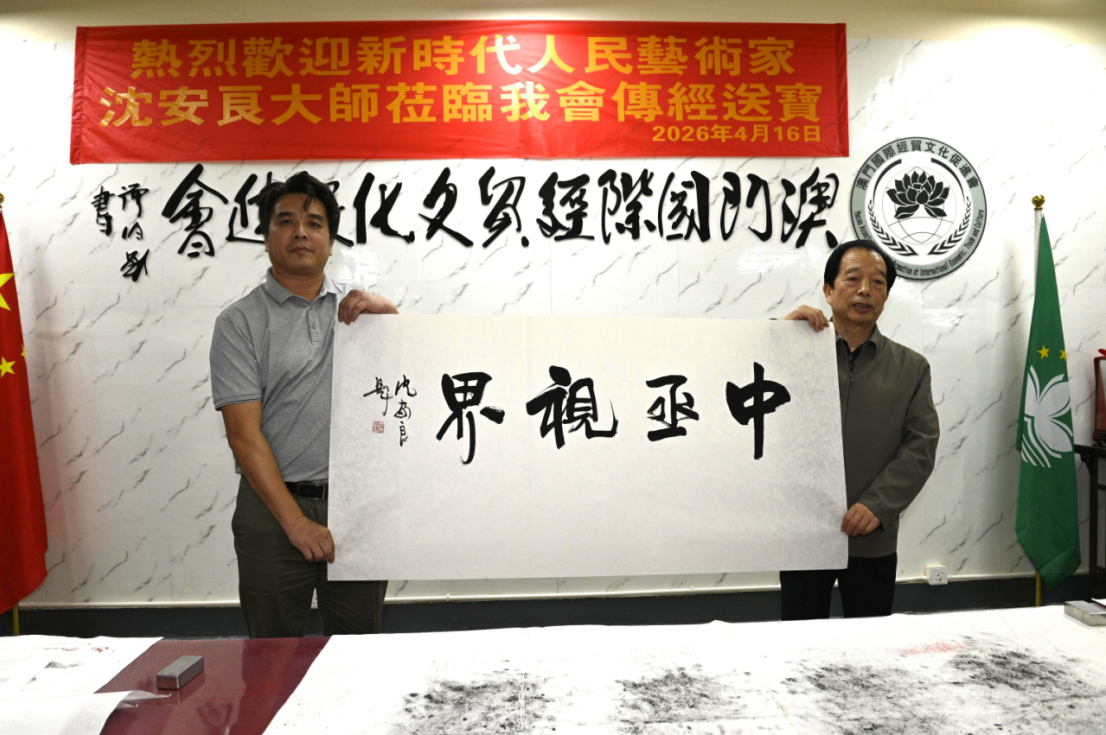 熱烈歡迎新時代人民藝術家
沈安良大師莅臨我會傳經送寶
2026年4月16日
澳门國際經貿文化進會
書
澳門國際經貿文化促進會
Promotion of International Economic, Trade and Culture
中丞視界
沈安良
題